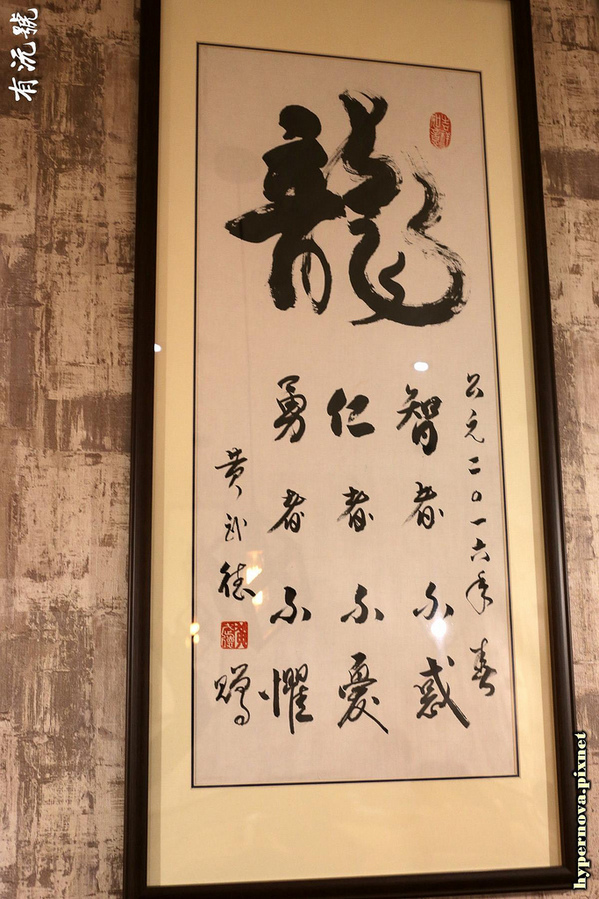 有沅號
龍
公元二〇一六年春
智者不惑
仁者不憂
勇者不懼
黃武德
贈
hypernova.pixnet